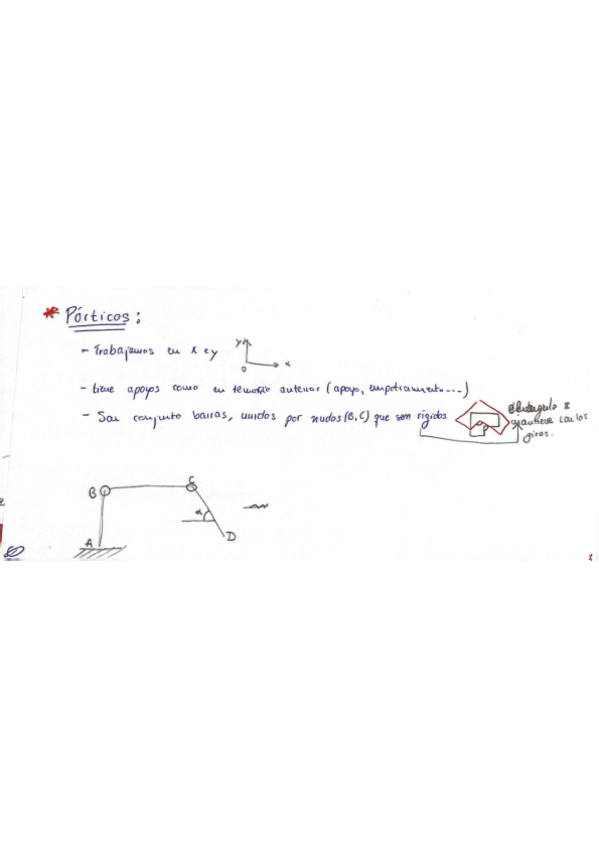 * Pórticos:
- Trabajamos en x e y
y
x
0
- tiene apoyos como en anterior (apoyo, empotramiento....)
- Son conjunto barras, unidos por nudos (B, C) que son rígidos
mantiene con los
giros.
B
C
α
A
D
1